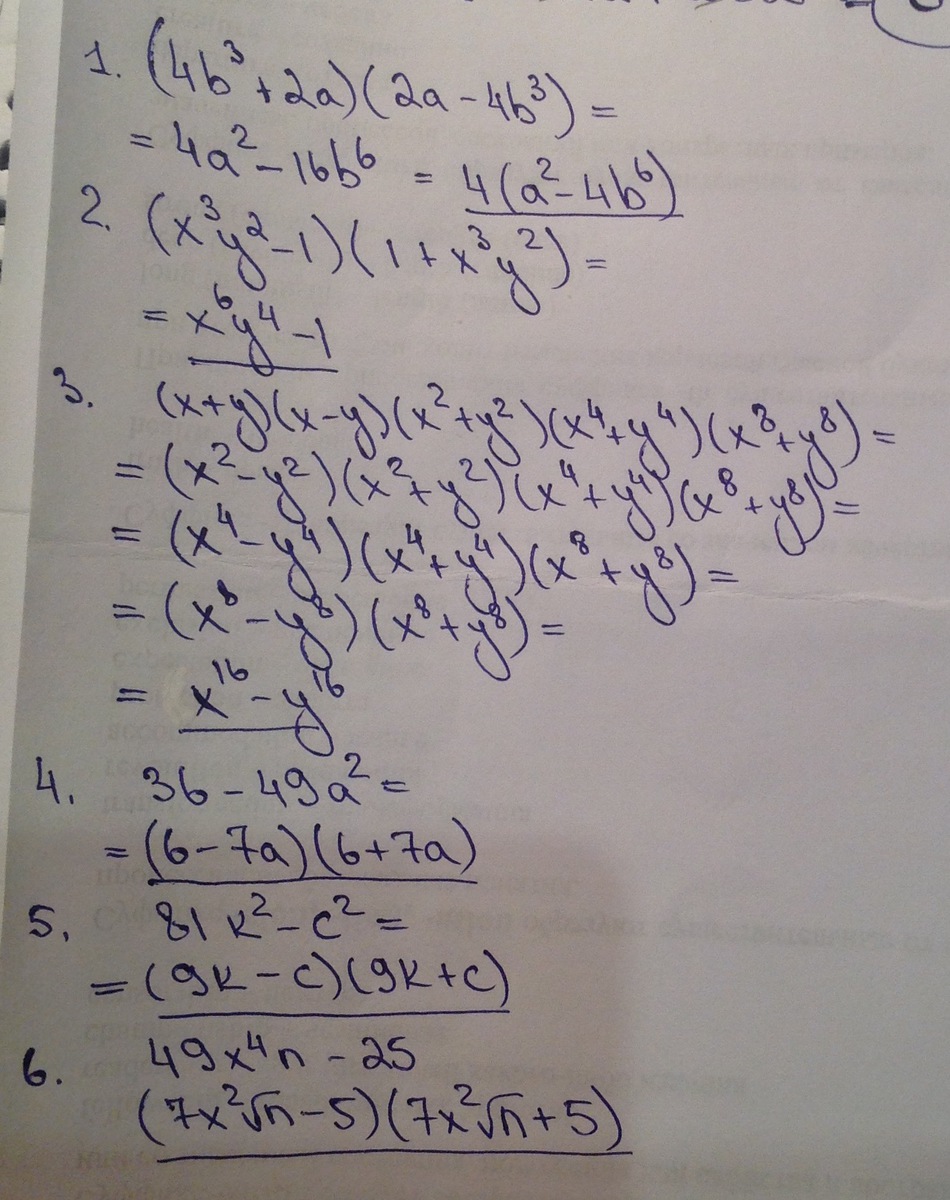 1. (4b³+2a)(2a-4b³)=
=4a²-16b⁶ = 4(a²-4b⁶)
2. (x³y²-1)(1+x³y²)=
= x⁶y⁴-1
3. (x+y)(x-y)(x²+y²)(x⁴+y⁴)(x⁸+y⁸)=
=(x²-y²)(x²+y²)(x⁴+y⁴)(x⁸+y⁸)=
=(x⁴-y⁴)(x⁴+y⁴)(x⁸+y⁸)=
=(x⁸-y⁸)(x⁸+y⁸)=
= x¹⁶-y¹⁶
4. 36-49a²=
=(6-7a)(6+7a)
5. 81k²-c²=
=(9k-c)(9k+c)
6. 49x⁴n-25
(7x²√n-5)(7x²√n+5)